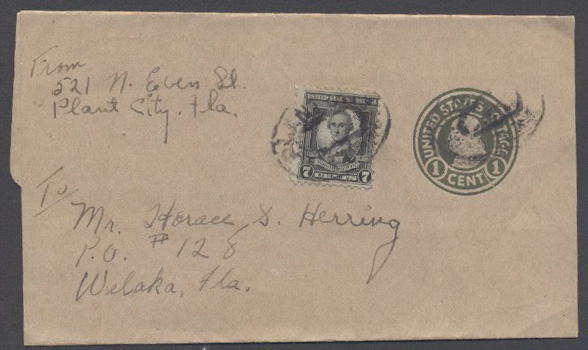 From
521 N. Evers St.
Plant City, Fla.
UNITED STATES POSTAGE
7 7
UNITED STATES POSTAGE
1 CENT 1
To
Mr. Horace S. Herring
P.O. # 128
Welaka, Fla.